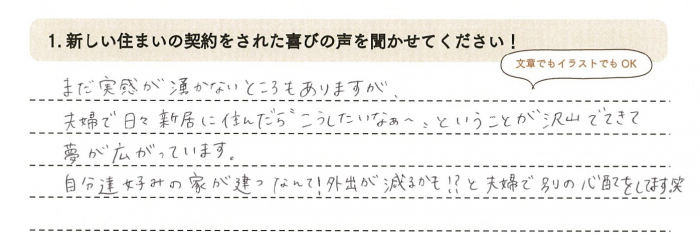 1. 新しい住まいの契約をされた喜びの声を聞かせてください！
文章でもイラストでもOK
まだ実感が湧かないところもありますが、
夫婦で日々新居に住んだら"こうしたいなぁ〜"ということが沢山でてきて
夢が広がっています。
自分達好みの家が建つなんて!外出が減るかも!?と夫婦で別の心配をしてます笑